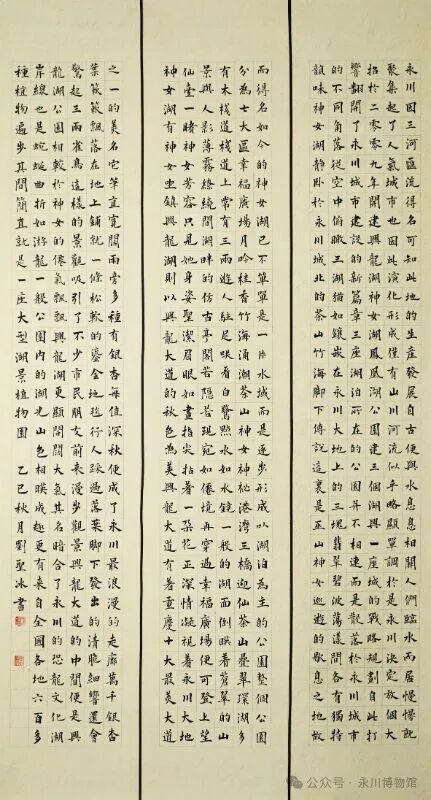 永川因三河匯流得名可知此地的生產發展自古便與水息息相關人們臨水而居慢慢就
聚集起了人氣城市也因此演化形成僅有山川河流似乎略顯單調於是永川決定放個大
招於二零零九年開建興龍湖神女湖鳳凰湖公園建三個湖興一座城的戰略規劃自此打
響翻開了永川城市建設的新篇章三座湖泊所在的公園并不相連而是散落於永川城市
的不同角落從空中俯瞰三湖猶如鑲嵌在永川大地上的三塊翡翠碧波蕩漾間各有獨特
韻味神女湖靜卧於永川城北的茶山竹海腳下傳說這裏是巫山神女巡遊的歇息之地故
而得名如今的神女湖已不單單是一片水城而是逐步形成以湖泊為主的公園整個公園
分為七大區幸福廣場月吟桂香竹海涌潮茶山神女神祕港灣三橋攬勝茶山疊翠環湖多
有木棧道棧道上常有三兩遊人駐足看白鷺點水如鏡一般的湖面倒映着蒼翠的山
景與人影薄霧繚繞間湖畔的仿古亭閣若隱若現宛如僊境再穿過幸福廣場便可登上望
仙臺一睹神女芳容只見她身姿聖潔眉眼如畫指尖拈着一朵花正深情凝視着永川大地
神女湖有神女坐鎮興龍湖則以興龍大道的秋色為美興龍大道有着重慶十大最美大道
之一的美名它筆直寬闊兩旁多種有銀杏每值深秋便成了永川最浪漫的走廊萬千銀杏
葉簌簌飄落在地上鋪就一條松軟的鎏金地毯行人踩過落葉腳下發出的清脆細響還會
驚起三兩雀鳥這樣的景觀吸引了不少市民朋友前來漫步龍大道的中間便是興
龍湖公園相較於神女的僊氣飄飄興龍湖更顯開闊大氣其名暗合了永川的恐龍文化湖
岸線也是蜿蜒曲折如游龍一般公園內的湖光山色相映成趣更有來自全國各地六百多
種植物遍步其間簡直就是一座大型湖景植物園 乙巳秋月劉聖冰書
公众号·永川博物馆